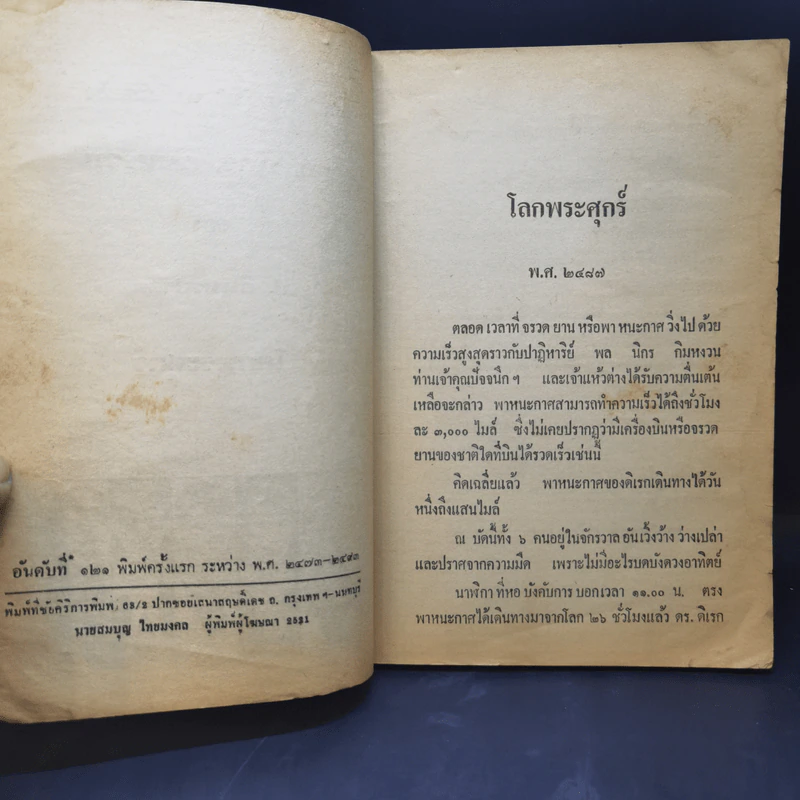 อันดับที่ ๑๒๑ พิมพ์ครั้งแรก ระหว่าง พ.ศ. ๒๔๗๓-๒๔๙๓
พิมพ์ที่ชัยศิริการพิมพ์ ๕๘/2 ปากซอยเสนาสฤษดิ์เดช ถ. กรุงเทพ ฯ-นนทบุรี
นายสมบุญ ไทยมงคล ผู้พิมพ์ผู้โฆษณา 2521
โลกพระศุกร์
พ.ศ. ๒๔๘๗
ตลอด เวลาที่ จรวด ยาน หรือพา หนะกาศ วิ่งไป ด้วย
ความเร็วสูงสุดราวกับปาฏิหาริย์ พล นิกร กิมหงวน
ท่านเจ้าคุณปัจจนึก ๆ และเจ้าแห้วต่างได้รับความตื่นเต้น
เหลือจะกล่าว พาหนะกาศสามารถทำความเร็วได้ถึงชั่วโมง
ละ ๓,๐๐๐ ไมล์ ซึ่งไม่เคยปรากฏว่ามีเครื่องบินหรือจรวด
ยานของชาติใดที่บินได้รวดเร็วเช่นนี้
คิดเฉลี่ยแล้ว พาหนะกาศของดิเรกเดินทางได้วัน
หนึ่งถึงแสนไมล์
ณ บัดนี้ทั้ง ๖ คนอยู่ในจักรวาล อันเวิ้งว้าง ว่างเปล่า
และปราศจากความมืด เพราะไม่มีอะไรบดบังดวงอาทิตย์
นาฬิกา ที่หอ บังคับการ บอกเวลา ๑๑.๐๐ น. ตรง
พาหนะกาศได้เดินทางมาจากโลก ๒๖ ชั่วโมงแล้ว ดร. ดิเรก